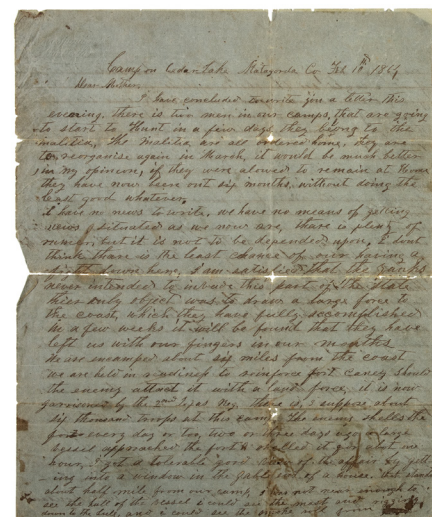 Camp on Cedar Lake Matagorda Co Feb 10th 1864
Dear Mother
I have concluded to write you a letter this
evening. there is two men in our camps, that are going
to start to Hunt in a few days they belong to the
malitia, The Malitia are all ordered home, they are
to reorganise again in March, it would be much better
in my opinion, if they were alowed to remain at Home
they have now been out six months, without doing the
least good whatever,
I have no news to write, we have no means of getting
news situated as we now are, thare is plenty of
rumors, but it is not to be depended upon, I dont
think thare is the least chance of our having a
fight down here, I am satisfied that the yanks
never intended to invade this part of the State
their only object was to draw a large force to
the coast, which they have fully accomplished
in a few weeks it will be found that they have
left us with our fingers in our mouths
We are encamped about six miles from the coast
we are held in readiness to reinforce fort Caney should
the enemy attact it with a land force, it is now
garrisoned by the 2nd Reg. There is, I suppose about
six thousand troops at this camp. The enemy shells the
fort every day or two, two or three days ago a large
vessel approached the fort & shelled it for
hours, I got a tolerable good view of the by gett
-ing into a window in the gable end of a house, that stands
about half mile from our camp, I was not near enough to
see the hull of the vessel i could see the mast and
down to the hull, and i could see the smoke